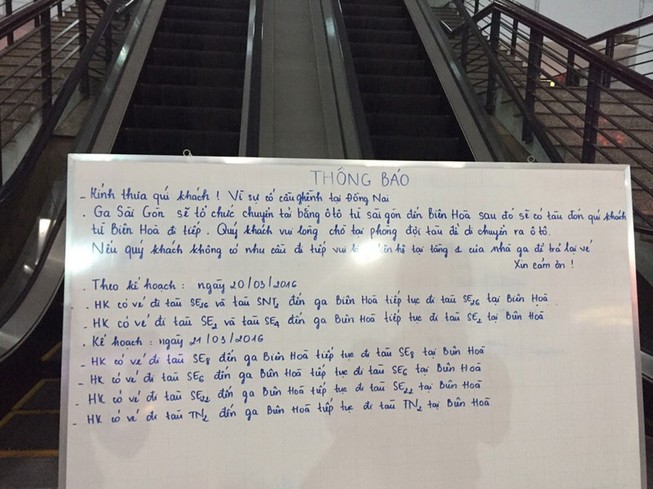 THÔNG BÁO
- Kính thưa quí khách ! Vì sự cố cầu ghềnh tại Đồng Nai
. Ga Sài Gòn sẽ tổ chức chuyển tải bằng ôtô từ sài gòn đến Biên Hoà sau đó sẽ có tàu đón quí khách
từ Biên Hoà đi tiếp. Quý khách vui lòng chờ tại phòng đợi tàu để di chuyển ra ô tô.
Nếu quý khách không có nhu cầu đi tiếp vui lòng liên hệ tại tầng 1 của nhà ga để trả lại vé
Xin cảm ơn !
. Theo kế hoạch : ngày 20/03/2016
- HK có vé đi tàu SE26 và tàu SNT2 đến ga Biên Hoà tiếp tục đi tàu SE26 tại Biên Hoà
- HK có vé đi tàu SE2 và tàu SE4 đến ga Biên Hoà tiếp tục đi tàu SE2 tại Biên Hoà
. Kế hoạch : ngày 21/03/2016
- HK có vé đi tàu SE8 đến ga Biên Hoà tiếp tục đi tàu SE8 tại Biên Hoà
- HK có vé đi tàu SE6 đến ga Biên Hoà tiếp tục đi tàu SE6 tại Biên Hoà
- HK có vé đi tàu SE22 đến ga Biên Hoà tiếp tục đi tàu SE22 tại Biên Hoà
- HK có vé đi tàu TN2 đến ga Biên Hoà tiếp tục đi tàu TN2 tại Biên Hoà